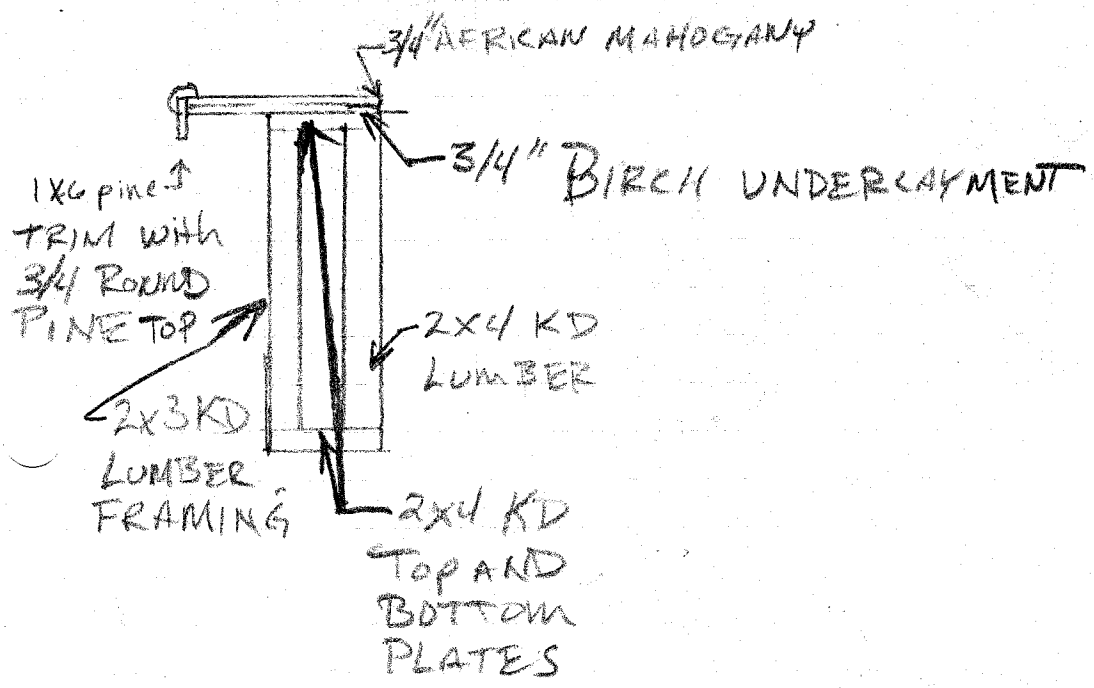 3/4" AFRICAN MAHOGANY
3/4" BIRCH UNDERLAYMENT
1x6 pine
TRIM with
3/4 ROUND
PINE TOP
2x4 KD
LUMBER
2x3 KD
LUMBER
FRAMING
2x4 KD
TOP AND
BOTTOM
PLATES